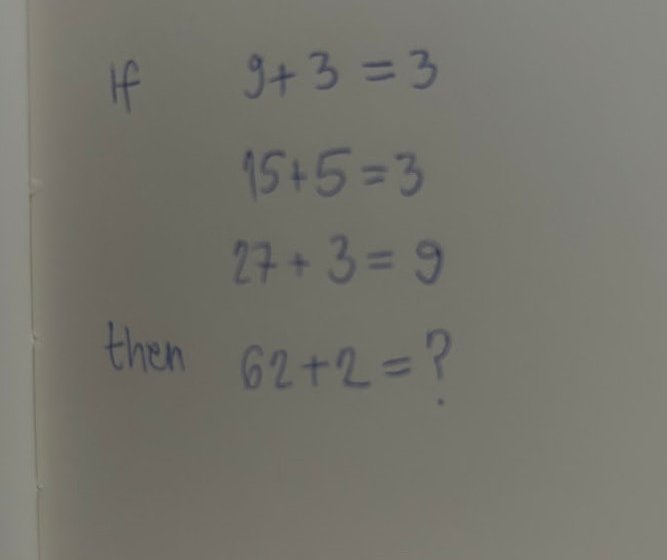 If 9+3=3
15+5=3
27+3=9
then 62+2=?